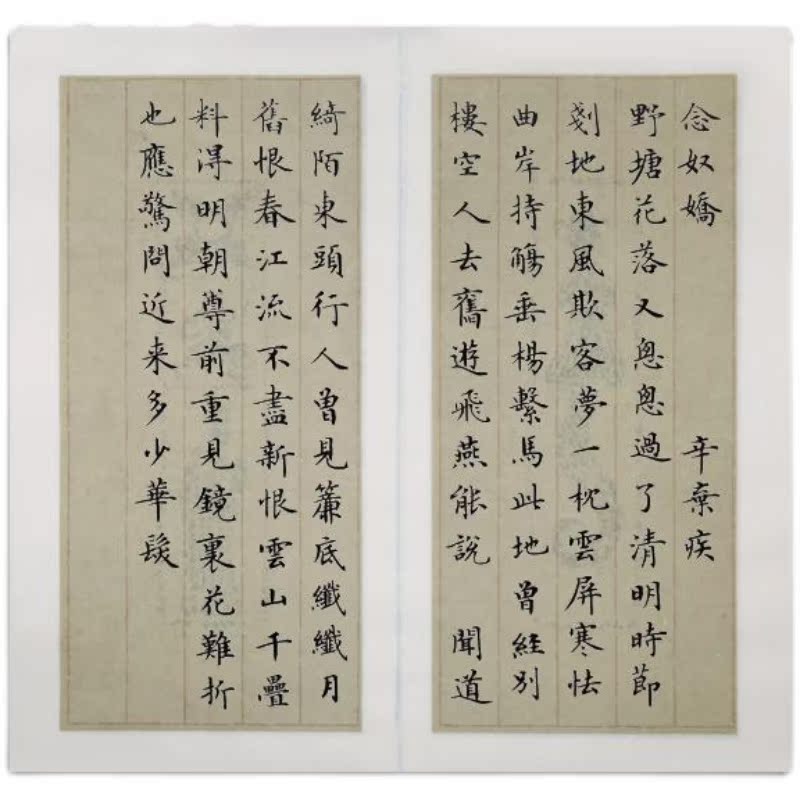 念奴嬌 辛棄疾
野塘花落又悤悤過了清明時節
剗地東風欺客夢一枕雲屏寒怯
曲岸持觴垂楊繫馬此地曾經別
樓空人去舊遊飛燕能說 聞道
綺陌東頭行人曾見簾底纖纖月
舊恨春江流不盡新恨雲山千疊
料得明朝尊前重見鏡裏花難折
也應驚問近来多少華髮